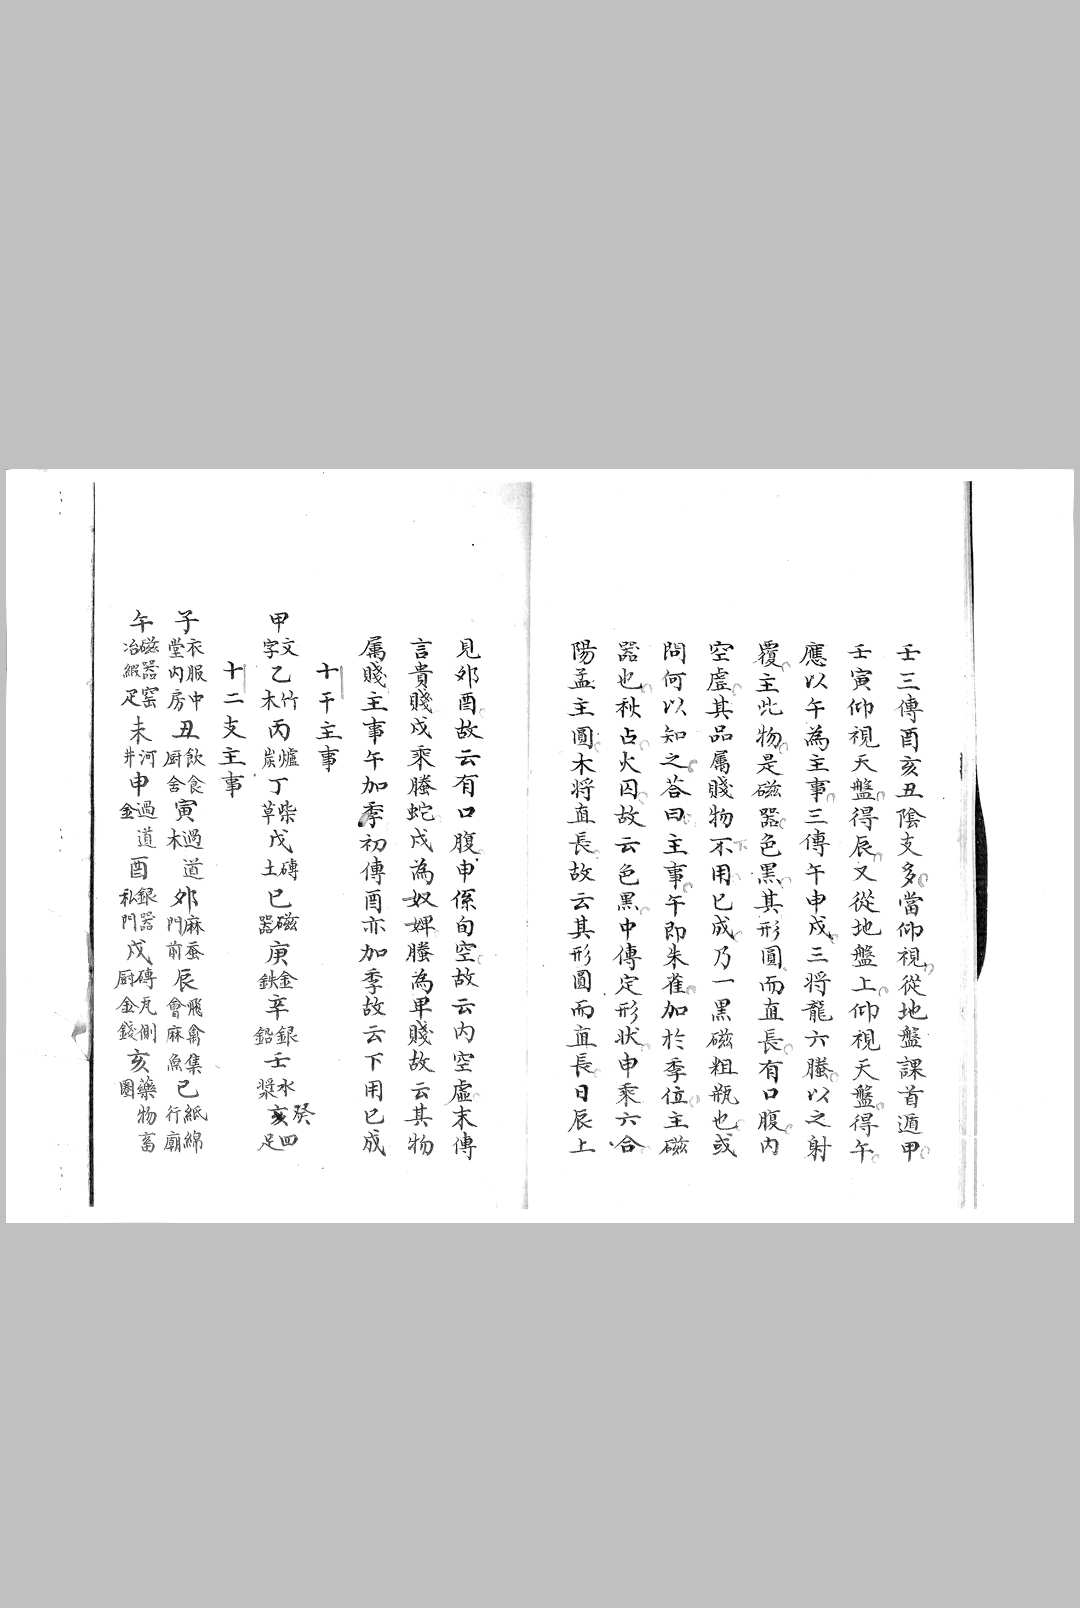 壬三傳酉亥丑陰支多當仰視從地盤課首遁甲
壬寅仰視天盤得辰又從地盤上仰視天盤得午
應以午為主事三傳午申戍三將龍六螣以之射
覆主此物是磁器色黑其形圓而直長有口腹内
空虛其品属賤物不用已成乃一黒磁粗瓶也或
問何以知之荅曰主事午即朱雀加於季位主磁
器也秋占火囚故云色黒中傳定形状申乘六合
陽孟主圓木将直長故云其形圓而直長日辰上
見夘酉故云有口腹申係旬空故云内空虛末傳
言貴賤戍乘螣蛇戍為奴婢螣為卑賤故云其物
属賤主事午加季初傳酉亦加季故云下用已成
十干主事
甲文字乙竹木丙爐炭丁柴草戊磚土己磁器庚金鉄辛銀鉛壬水漿癸亥四足
十二支主事
子衣服中堂内房丑飲食厨舍寅過道木夘麻蚕門前辰飛禽集會麻魚巳紙綿行廟
午磁器窑冶緞疋未河井申過道金酉銀器私門戍磚瓦側厨金錢亥藥物畜圂